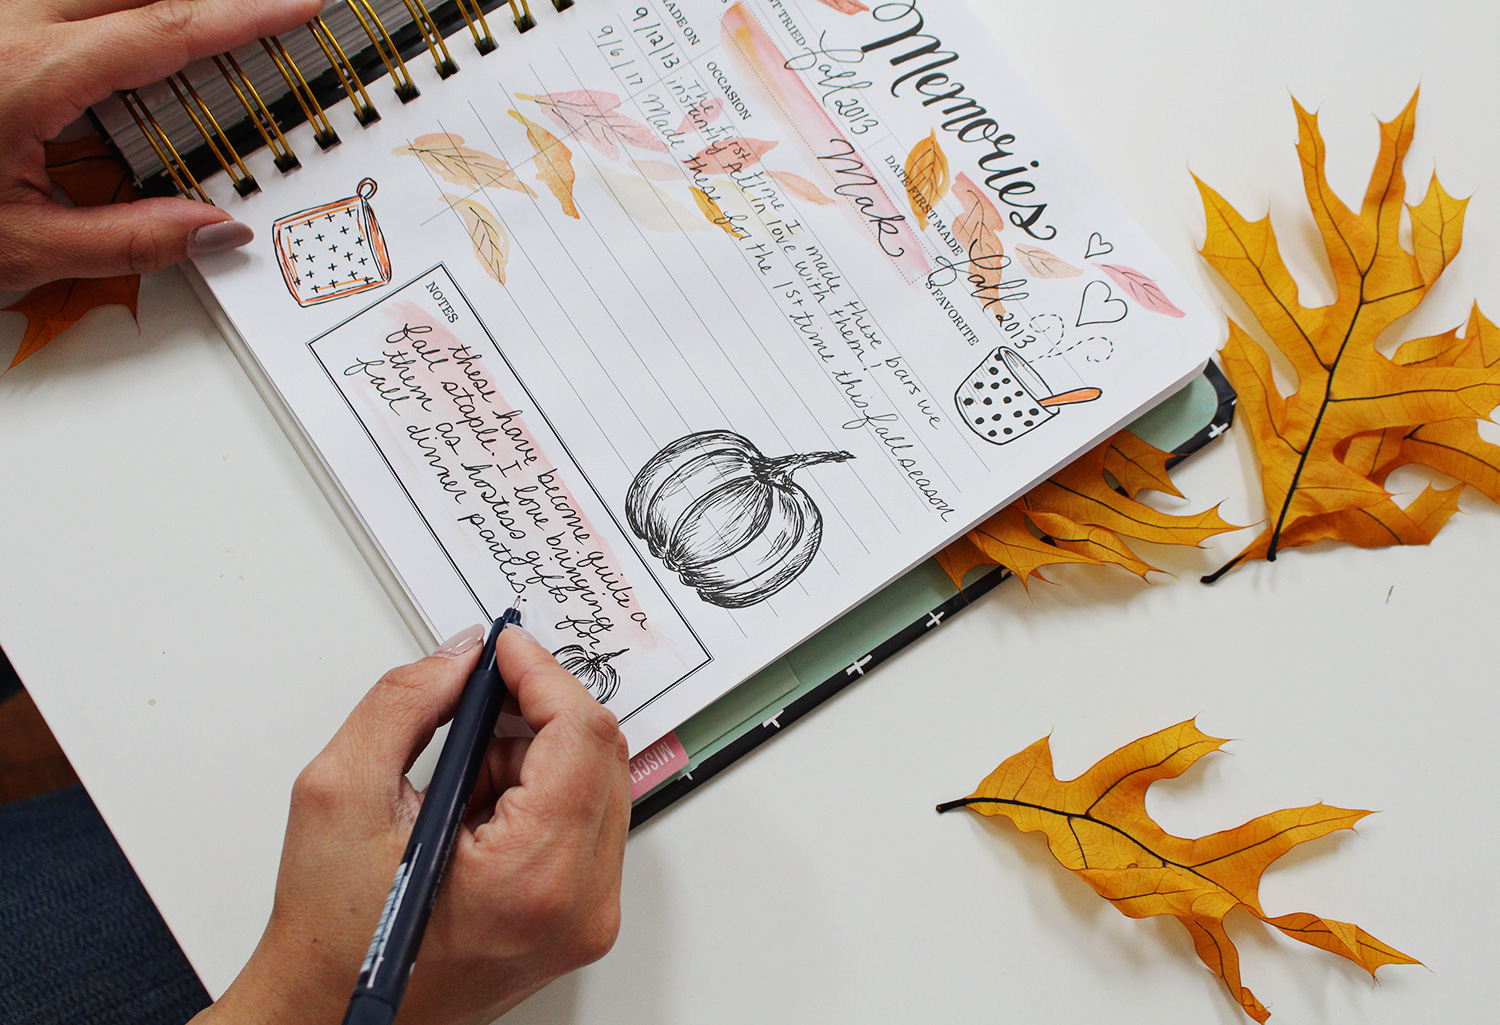 Memories
ST TRIED
fall 2013
DATE FIRST MADE
fall 2013
S FAVORITE
Mak
MADE ON
OCCASION
9/12/13
The first time I made these bars we
instantly fell in love with them!
9/6/17
Made these for the 1st time this fall season
NOTES
these have become quite a
fall staple. I love bringing
them as hostess gifts for
fall dinner parties.
MISCEL